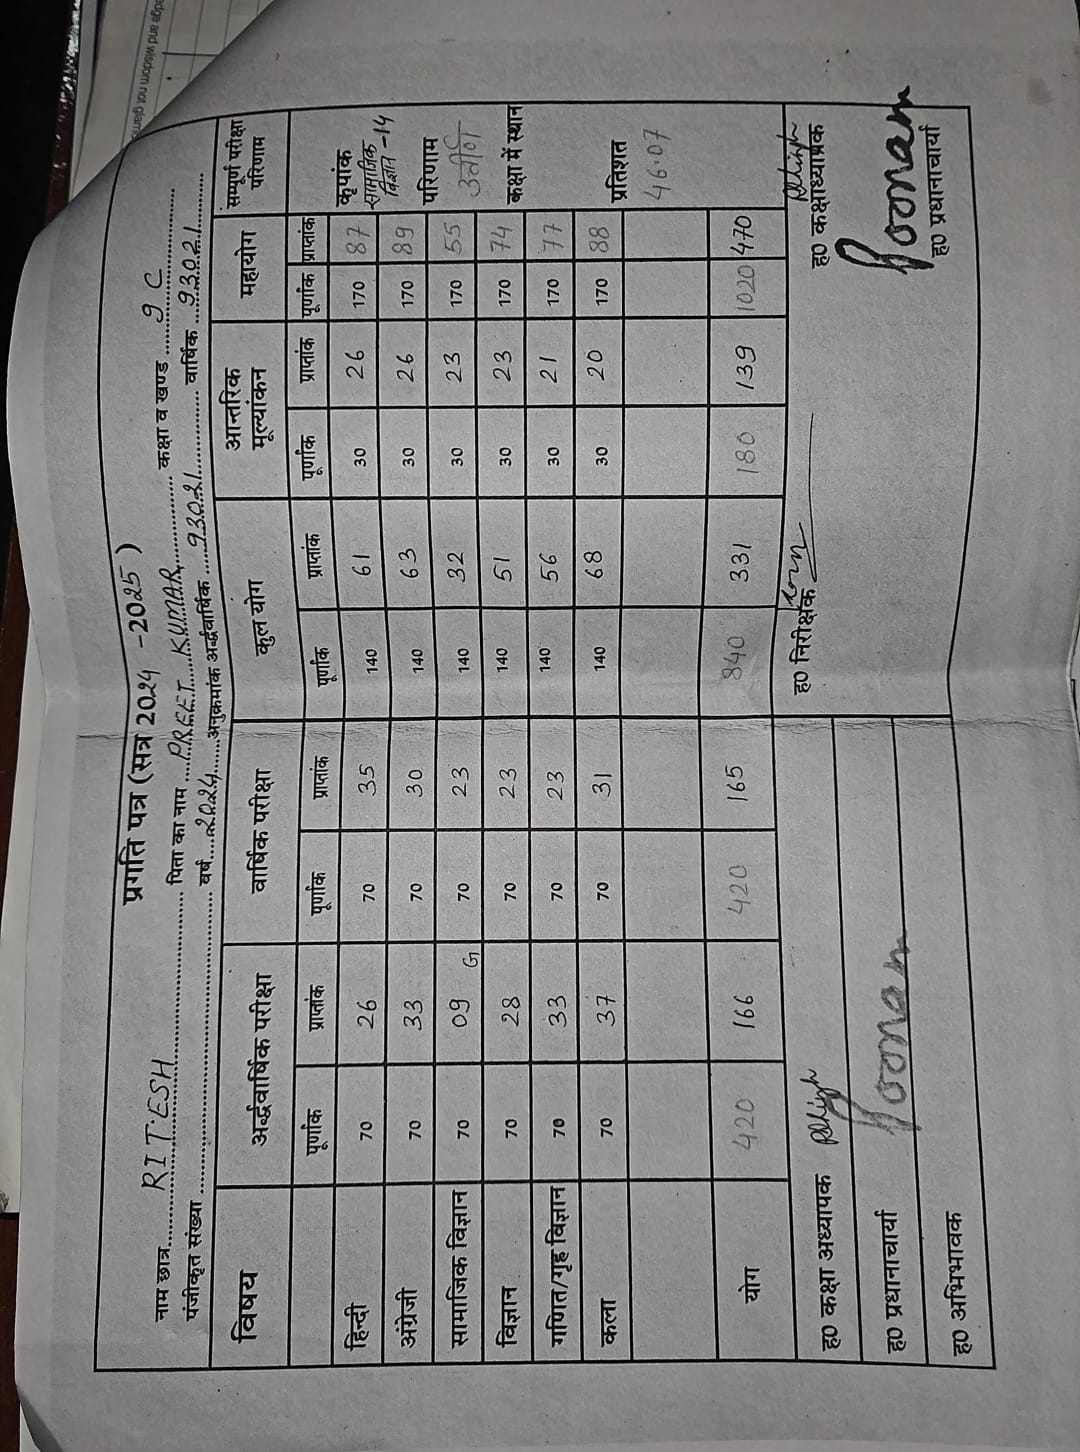 edge and wisdom not glamo
प्रगति पत्र (सत्र 2024 -2025)
नाम छात्र RITESH पिता का नाम PREET KUMAR कक्षा व खण्ड 9 C
पंजीकृत संख्या वर्ष 2024 अनुक्रमांक अर्द्धवार्षिक 93021 वार्षिक 93021
विषय अर्द्धवार्षिक परीक्षा वार्षिक परीक्षा कुल योग आन्तरिक मूल्यांकन महायोग सम्पूर्ण परीक्षा परिणाम
पूर्णांक प्राप्तांक पूर्णांक प्राप्तांक पूर्णांक प्राप्तांक पूर्णांक प्राप्तांक पूर्णांक प्राप्तांक
हिन्दी 70 26 70 35 140 61 30 26 170 87 कृपांक सामाजिक विज्ञान -14
अंग्रेजी 70 33 70 30 140 63 30 26 170 89
सामाजिक विज्ञान 70 09 G 70 23 140 32 30 23 170 55 परिणाम उत्तीर्ण
विज्ञान 70 28 70 23 140 51 30 23 170 74 कक्षा में स्थान
गणित/गृह विज्ञान 70 33 70 23 140 56 30 21 170 77
कला 70 37 70 31 140 68 30 20 170 88 प्रतिशत
46.07
योग 420 166 420 165 840 331 180 139 1020 470
ह0 कक्षा अध्यापक ह0 निरीक्षक ह0 कक्षाध्यापक
ह0 प्रधानाचार्या Poonam Poonam
ह0 प्रधानाचार्या
ह0 अभिभावक